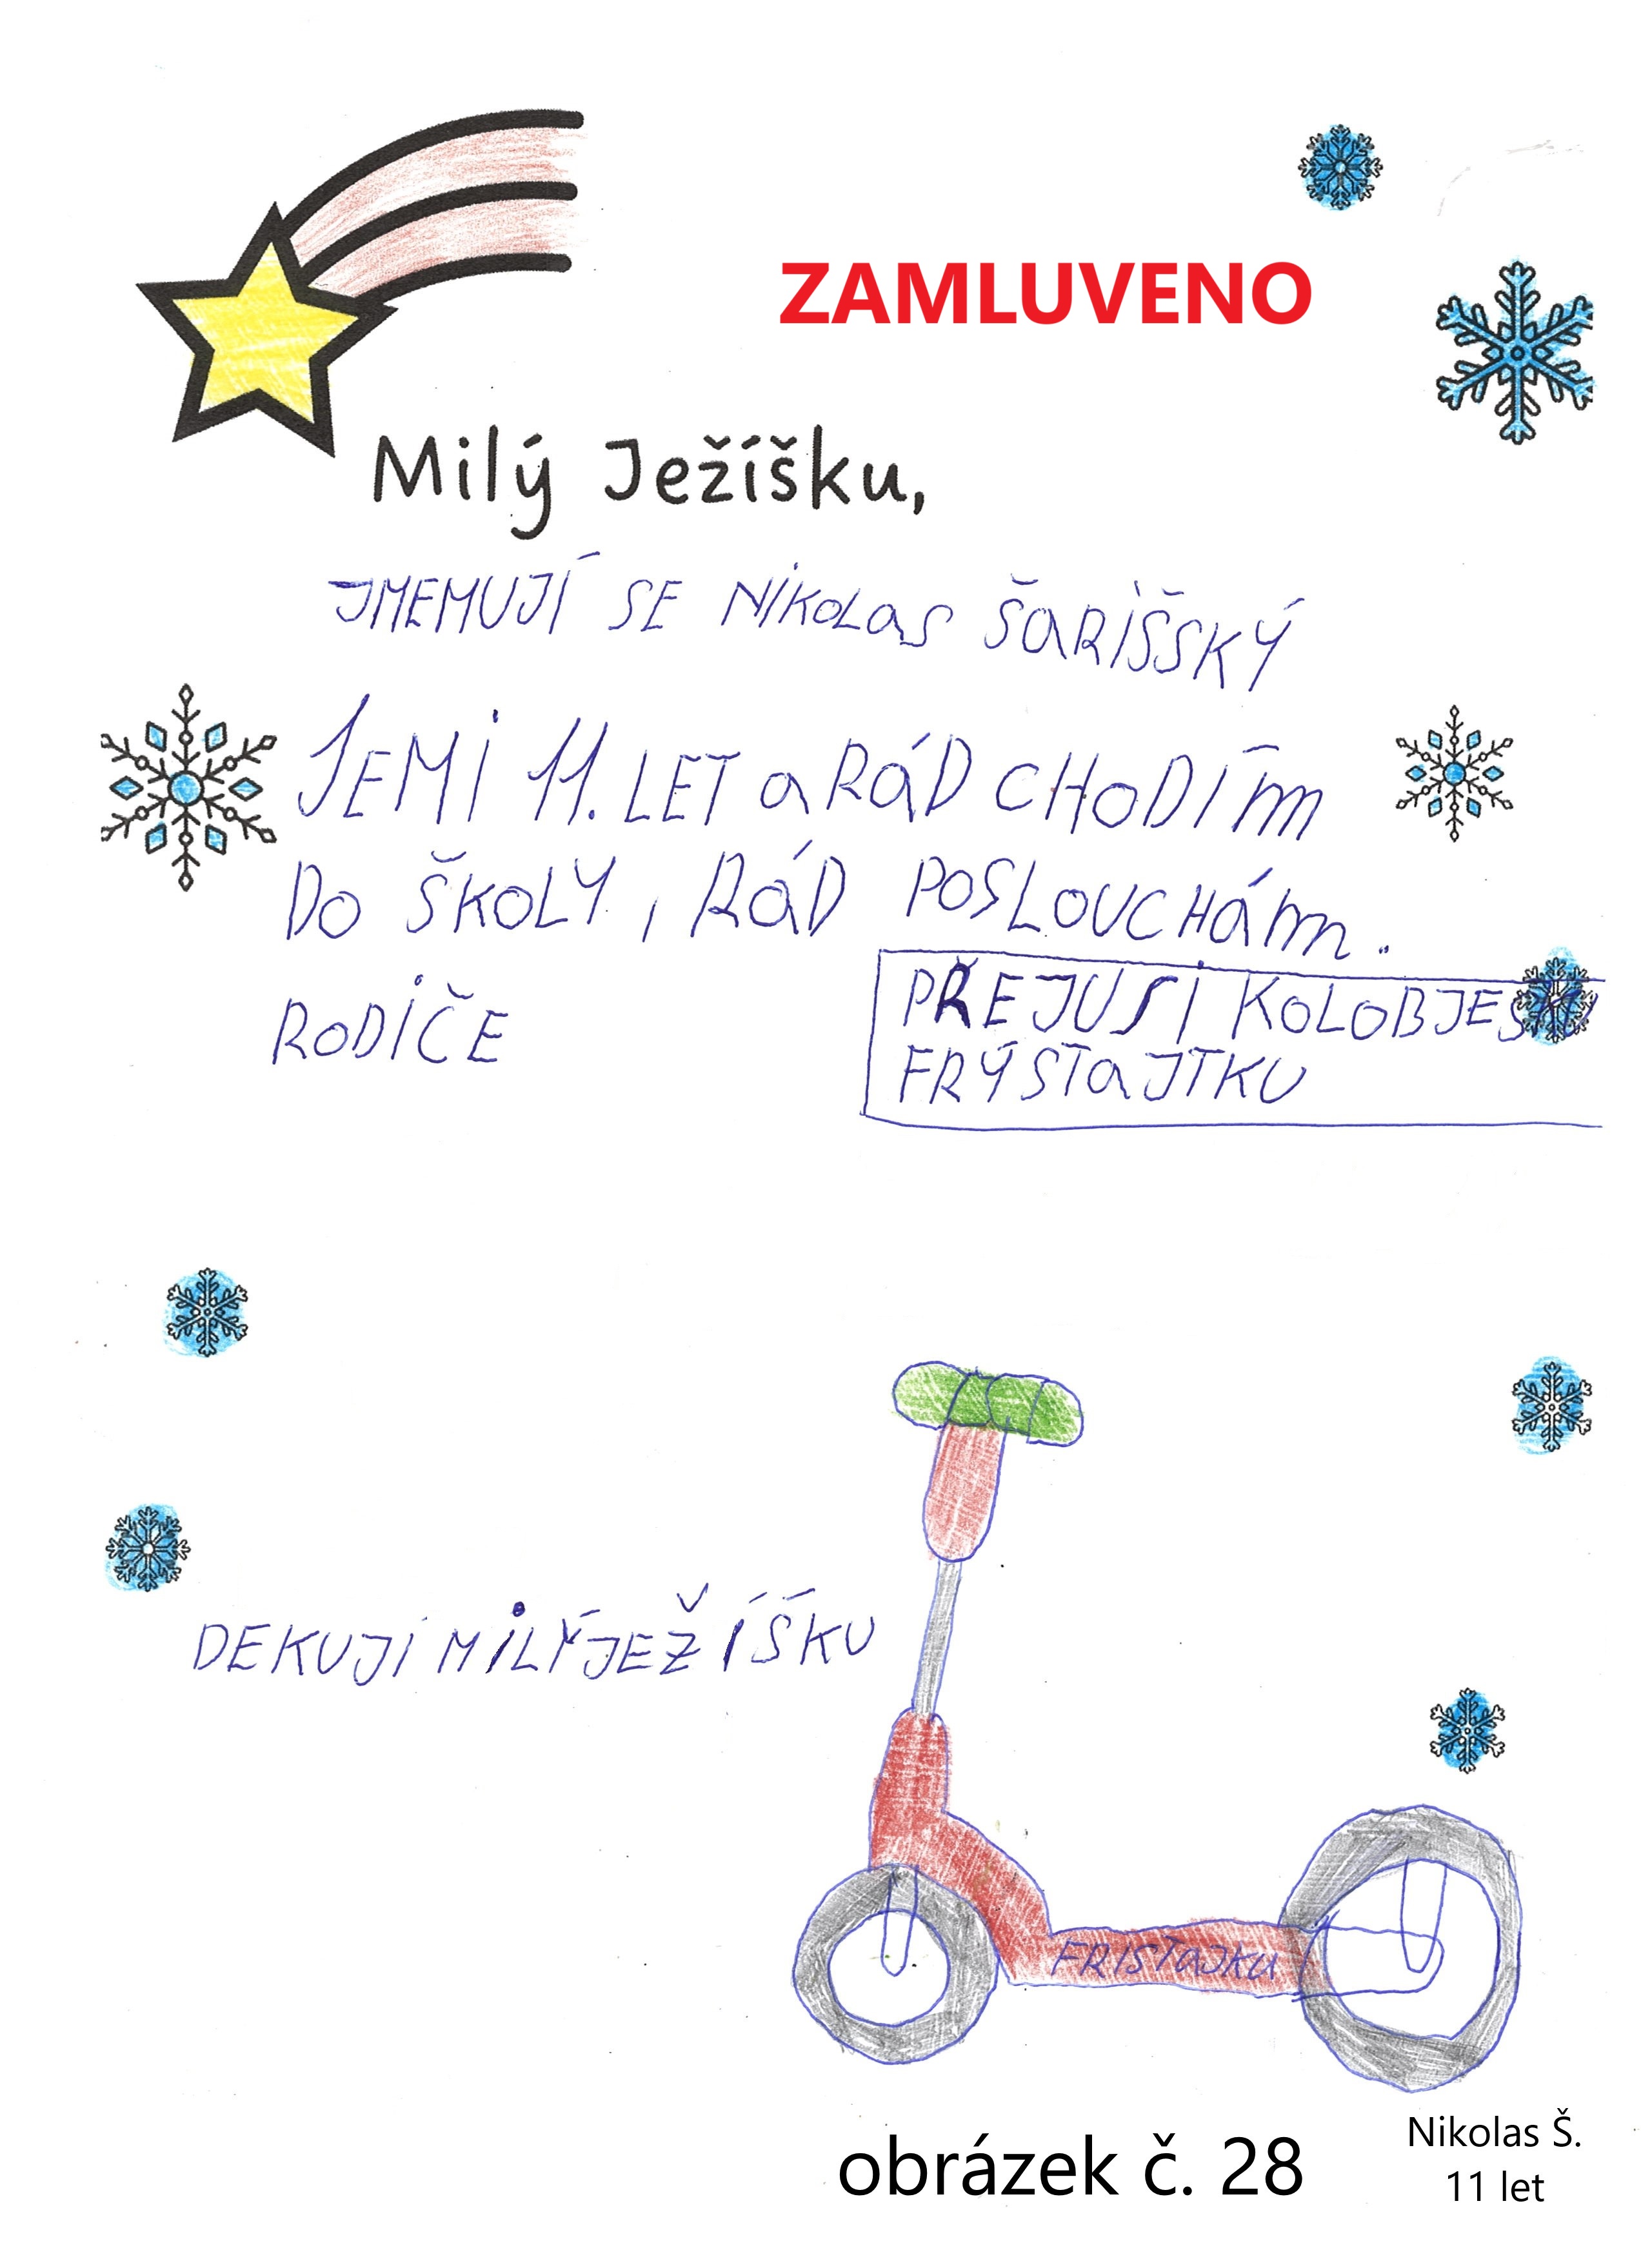 ZAMLUVENO
Milý Ježíšku,
JMEMUJÍ SE NIKOLAS ŠARIŠSKÝ
JEMI 11. LET a RÁD CHODÍm
DO ŠKOLY, RÁD POSLOUCHÁm.
RODIČE
PŘEJUSI KOLOBJESKU
FRÝSTAJTKU
DEKUJI MILÝ JEŽÍŠKU
FRISTAJKU
obrázek č. 28
Nikolas Š.
11 let